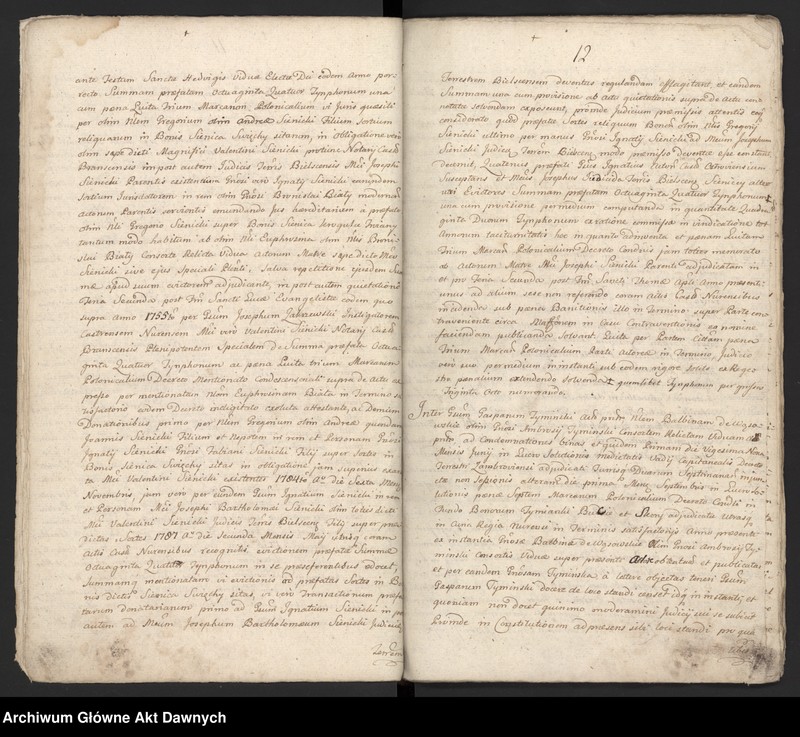 ante Festum Sanctæ Hedvigis Viduæ Electæ Dei eodem Anno per
recto Summam præfatam Octuaginta Quatuor Tynphonum una
cum pæna Luita Trium Marcarum Polonicalium vi Juris quæsiti
per olim Nlem Gregorium olim Andreæ Sienicki Filium Sortium
reliquarum in Bonis Sienica Swięchy sitarum, in obligatione vero
olim sæpe dicti Magnifici Valentini Sienicki protunc Notarij Castr
Branscensis impost autem Judicis Terris Bielscensis Mci Josephi
Sienicki Parentis existentium Gnosi vero Ignatij Sienicki earundem
Sortium
actorum Parentis servientis emundando jus hæreditarium a præfato
olim Nli Gregorio Sienicki super Bonis Sienica
tantum modo habitum ab olim Nli Euphrosina olim Nlis Broni-
slai Biały Consorte Relicta Vidua Actorum Matre sæpe dicto Mco
Sienicki sive ejus Speciali Plenti. Salva repetitione ejusdem Sum
mæ apud suum evictorem adjudicanti, in post autem quietationis
Feria Secunda post Ftm Sancti Lucæ Evangelistæ eodem quo
supra Anno 1755to per Gsum Josephum Zakrzewski Instigatorem
Castrensem Nurensem Mci vero Valentini Sienicki Notarij Castr
Branscensis Plenipotentem Specialem de Summa præfata Octua
ginta Quatuor Tynphonum ac pæna Luita trium Marcarum
Polonicalium Decreto Mentionato Condescensciali supra de Actu ex
presso per mentionatam Nlem Euphrosinam Biała in Termino sa
tisfactorio eodem Decreto indigitato exoluta attestante, ac Demum
Donationibus primo per Nlem Gregorium olim Andreæ quondam
Joannis Sienicki Filium et Nepotem in rem et Personam Gnosi
Ignatij Sienicki Gnosi Fabiani Sienicki Filij super Sortes in
Bonis Sienica Swięchy sitas in obligatione jam superius exara
ta Mci Valentini Sienicki existentes 1784to Ao Die Sexta Mensis
Novembris, jam vero per eundem Gsum Ignatium Sienicki in rem
et Personam Mci Josephi Bartholomæi Sienicki olim toties dicti
Mci Valentini Sienicki Judicis Terris Bielscens Filij super præ
dictas Sortes 1787 Ao Die Secunda Mensis Maij utrisq coram
Actis Castr Nurensibus recognitis evictionem præfatæ Summæ
Octuaginta Quatuor Tynphonum in se præseferentibus edocet,
Summamq mentionatam vi evictionis ad præfatas Sortes in Bo
nis dictis Sienica Swięchy sitas, vi vero Transactionum præfa
tarum donatariarum primo ad Gsum Ignatium Sienicki in post
autem ad Mcum Josephum Bartholomæum Sienicki Judicem
Terrem
12
Terrestrem Bielscensem deventas regulandam efflagitant, et eandem
Summam una cum provisione ab actu quietationis supra de Actu con
notatæ solvendam exposcunt, proinde Judicium præmissis attentis ex
considerato quod præfatæ Sortes reliquum Bonorum olim Nlis Gregorij
Sienicki ultimo per manus Gnosi Ignatij Sienicki ad Mcum Josephum
Sienicki Judicem Terrem Bielscen modo præmisso deventæ esse constant
decernit, Quatenus præfati Gsus Ignatius Victor Castr Ostroviensium
Susceptans et Mcus Josephus Judex Terris Bielscens Sieniccy alter
uter Evictores Summam præfatam Octuaginta Quatuor Tynphonum
una cum provisione per medium computanda in quantitate Quadra
ginta Duarum Tynphonum ex ratione commissæ in vindicatione tot
Annorum taciturnitatis hoc in quanto admoventa et pænam Luitam
Trium Marcar Polonicalium Decreto Condnis jam toties memorato
ab Actorum Matre Mci Josephi Sienicki Parenti adjudicatam in
et pro Feria Secunda post Ftm Sancti Thomæ Apli Anno præsenti
unus ad alium sese non referendo coram Actis Castr Nurensibus
incidenda sub pæna Banitionis illo in Termino super Parte con
traveniente circa Staffarem in casu Contraventionis ex nomine
faciendam publicanda solvant Luita per Partem Citatam pæna
Trium Marcar Polonicalium Parti Actoreæ in Termino, Judicio
vero sui per medium instanti sub eodem rigore solvi ex Rege
stro pænalium extendendo solvenda, quemlibet Tynphonem per grossos
Triginta Octo
Inter Gsum Gasparum Tyminski Actr prntr Nlem Balbinam de Wąso-
wskie olim Gnosi Ambrosij Tyminski Consortem Relictam Viduam
prntr. ad Condemnationes binas et quidem Primam die Vigesima Nona
Mensis Junij in Lucro Solutionis medietatis Vadij Capitanealis Decreto
Terrestri Zambroviensi adjudicati Juriumq Duarum Septimanarum injunc
ta non Sessionis alteram die prima Mens Septembris in Lucro So-
lutionis pænæ Septem Marcarum Polonicalium Decreto Condii in
Fundo Bonorum Tyminki Bucie et Slony adjudicatæ utrasq
in Curia Regia Nurevsi in Terminis satisfactorijs Anno præsenti
ex instantia Gnosæ Balbinæ de Wąsowskie olim Gnosi Ambrosij Ty-
minski Consortis Viduæ super præsente Actore obtentas et publicatas
et per eandem Gnosam Tyminska a latere objectas teneri Gsum
Gasparum Tyminski docere de loco standi censet idq in instanti, et
quoniam non docet quinimo moderamini Judicij sui se subjicit
Proinde in Constitutionem ad præsens sibi loci standi pro qua